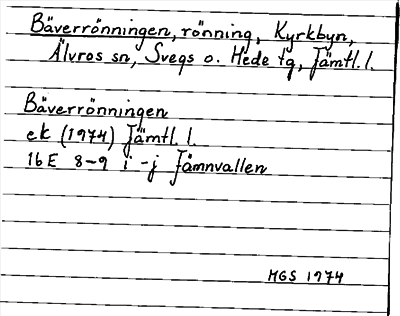 Bäverrönningen, rönning, Kyrkbyn,
Älvros sn, Svegs o. Hede tg, Jämtl. l.
Bäverrönningen
ek (1974) Jämtl. l.
16 E 8-9 i-j Jämnvallen
MGS 1974